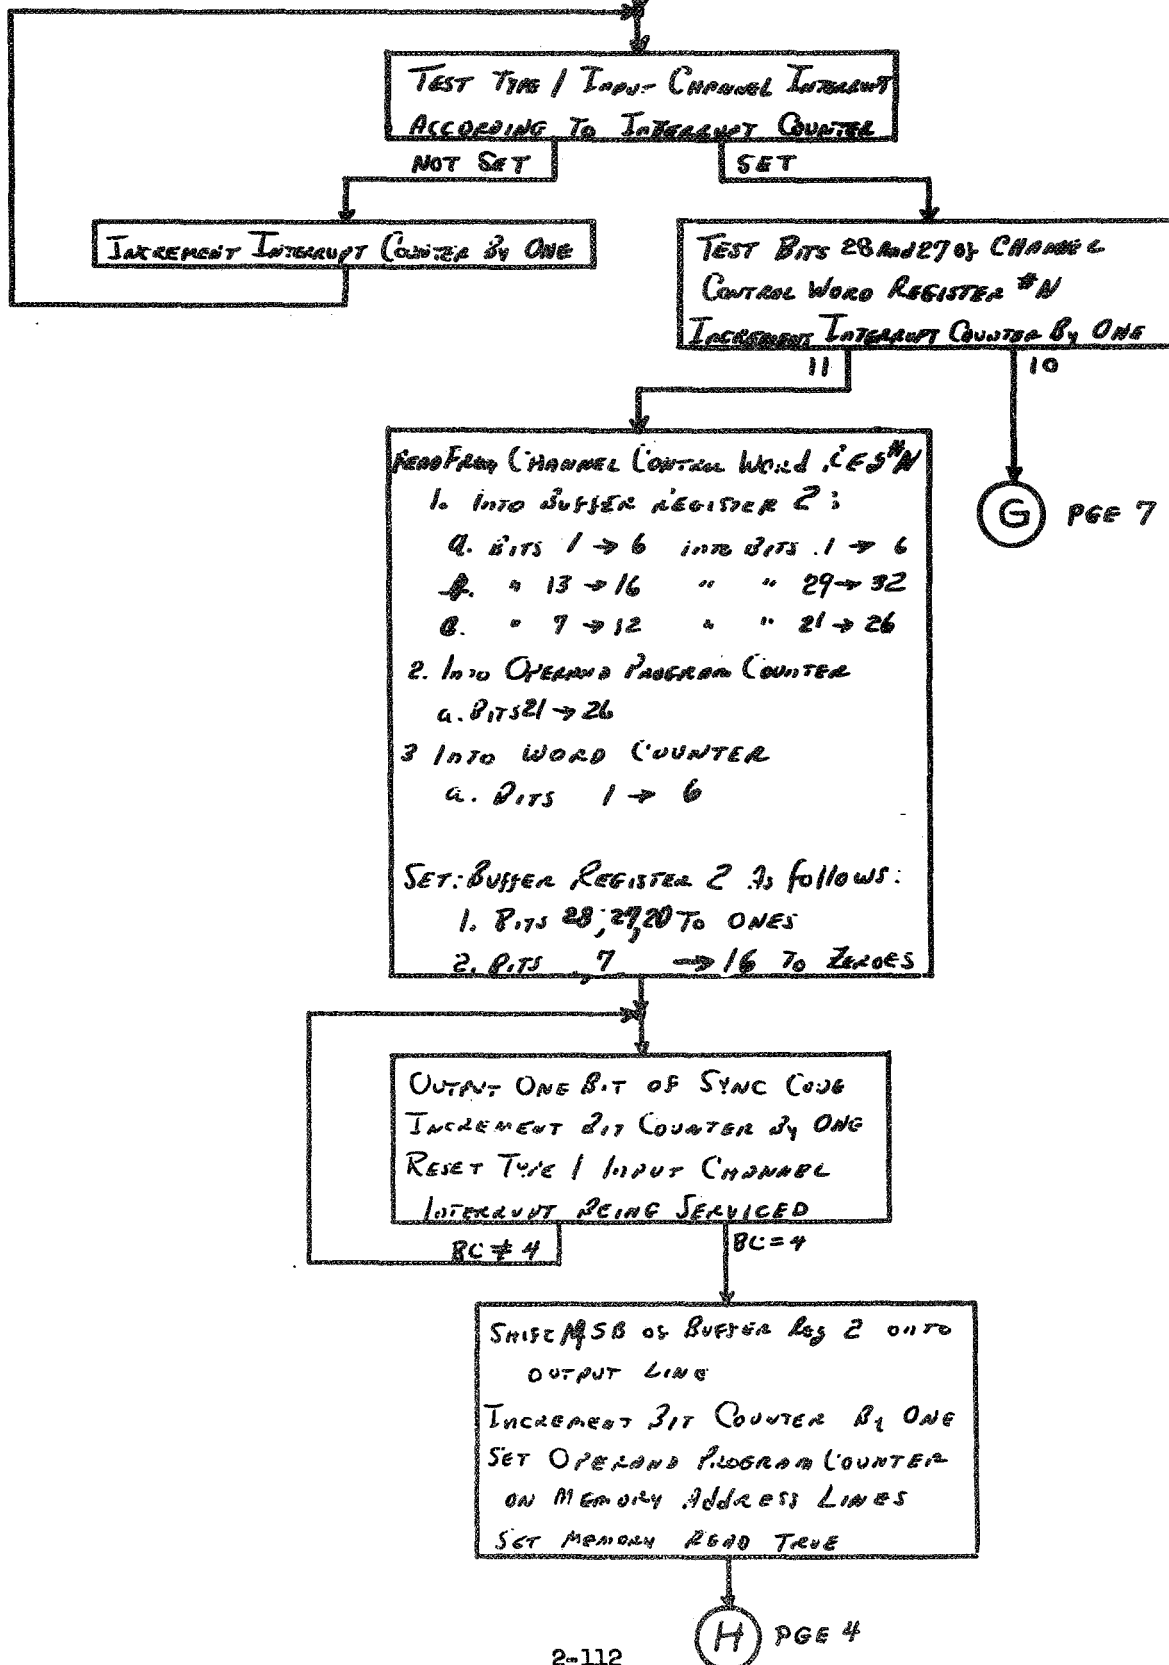 TEST TYPE 1 INPUT CHANNEL INTERRUPT
ACCORDING TO INTERRUPT COUNTER
NOT SET
SET
INCREMENT INTERRUPT COUNTER By ONE
TEST BITS 28 And 27 of CHANNEL
CONTROL WORD REGISTER #N
INCREMENT INTERRUPT COUNTER By ONE
11
10
READ FROM CHANNEL CONTROL WORD #N
G PGE 7
1. INTO BUFFER REGISTER 2:
a. BITS 1 → 6 into BITS 1 → 6
b. " 13 → 16 " " 29 → 32
c. " 7 → 12 " " 21 → 26
2. INTO OPERAND PROGRAM COUNTER
a. BITS 21 → 26
3 INTO WORD COUNTER
a. BITS 1 → 6
SET: BUFFER REGISTER 2 As follows:
1. BITS 28, 27, 20 To ONES
2. BITS 7 → 16 To ZEROES
OUTPUT ONE BIT OF SYNC CODE
INCREMENT BIT COUNTER By ONE
RESET TYPE 1 INPUT CHANNEL
INTERRUPT BEING SERVICED
BC ≠ 4
BC = 4
SHIFT MSB of BUFFER Reg 2 ONTO
OUTPUT LINE
INCREMENT BIT COUNTER By ONE
SET OPERAND PROGRAM COUNTER
ON MEMORY Address LINES
SET MEMORY READ TRUE
H PGE 4
2-112